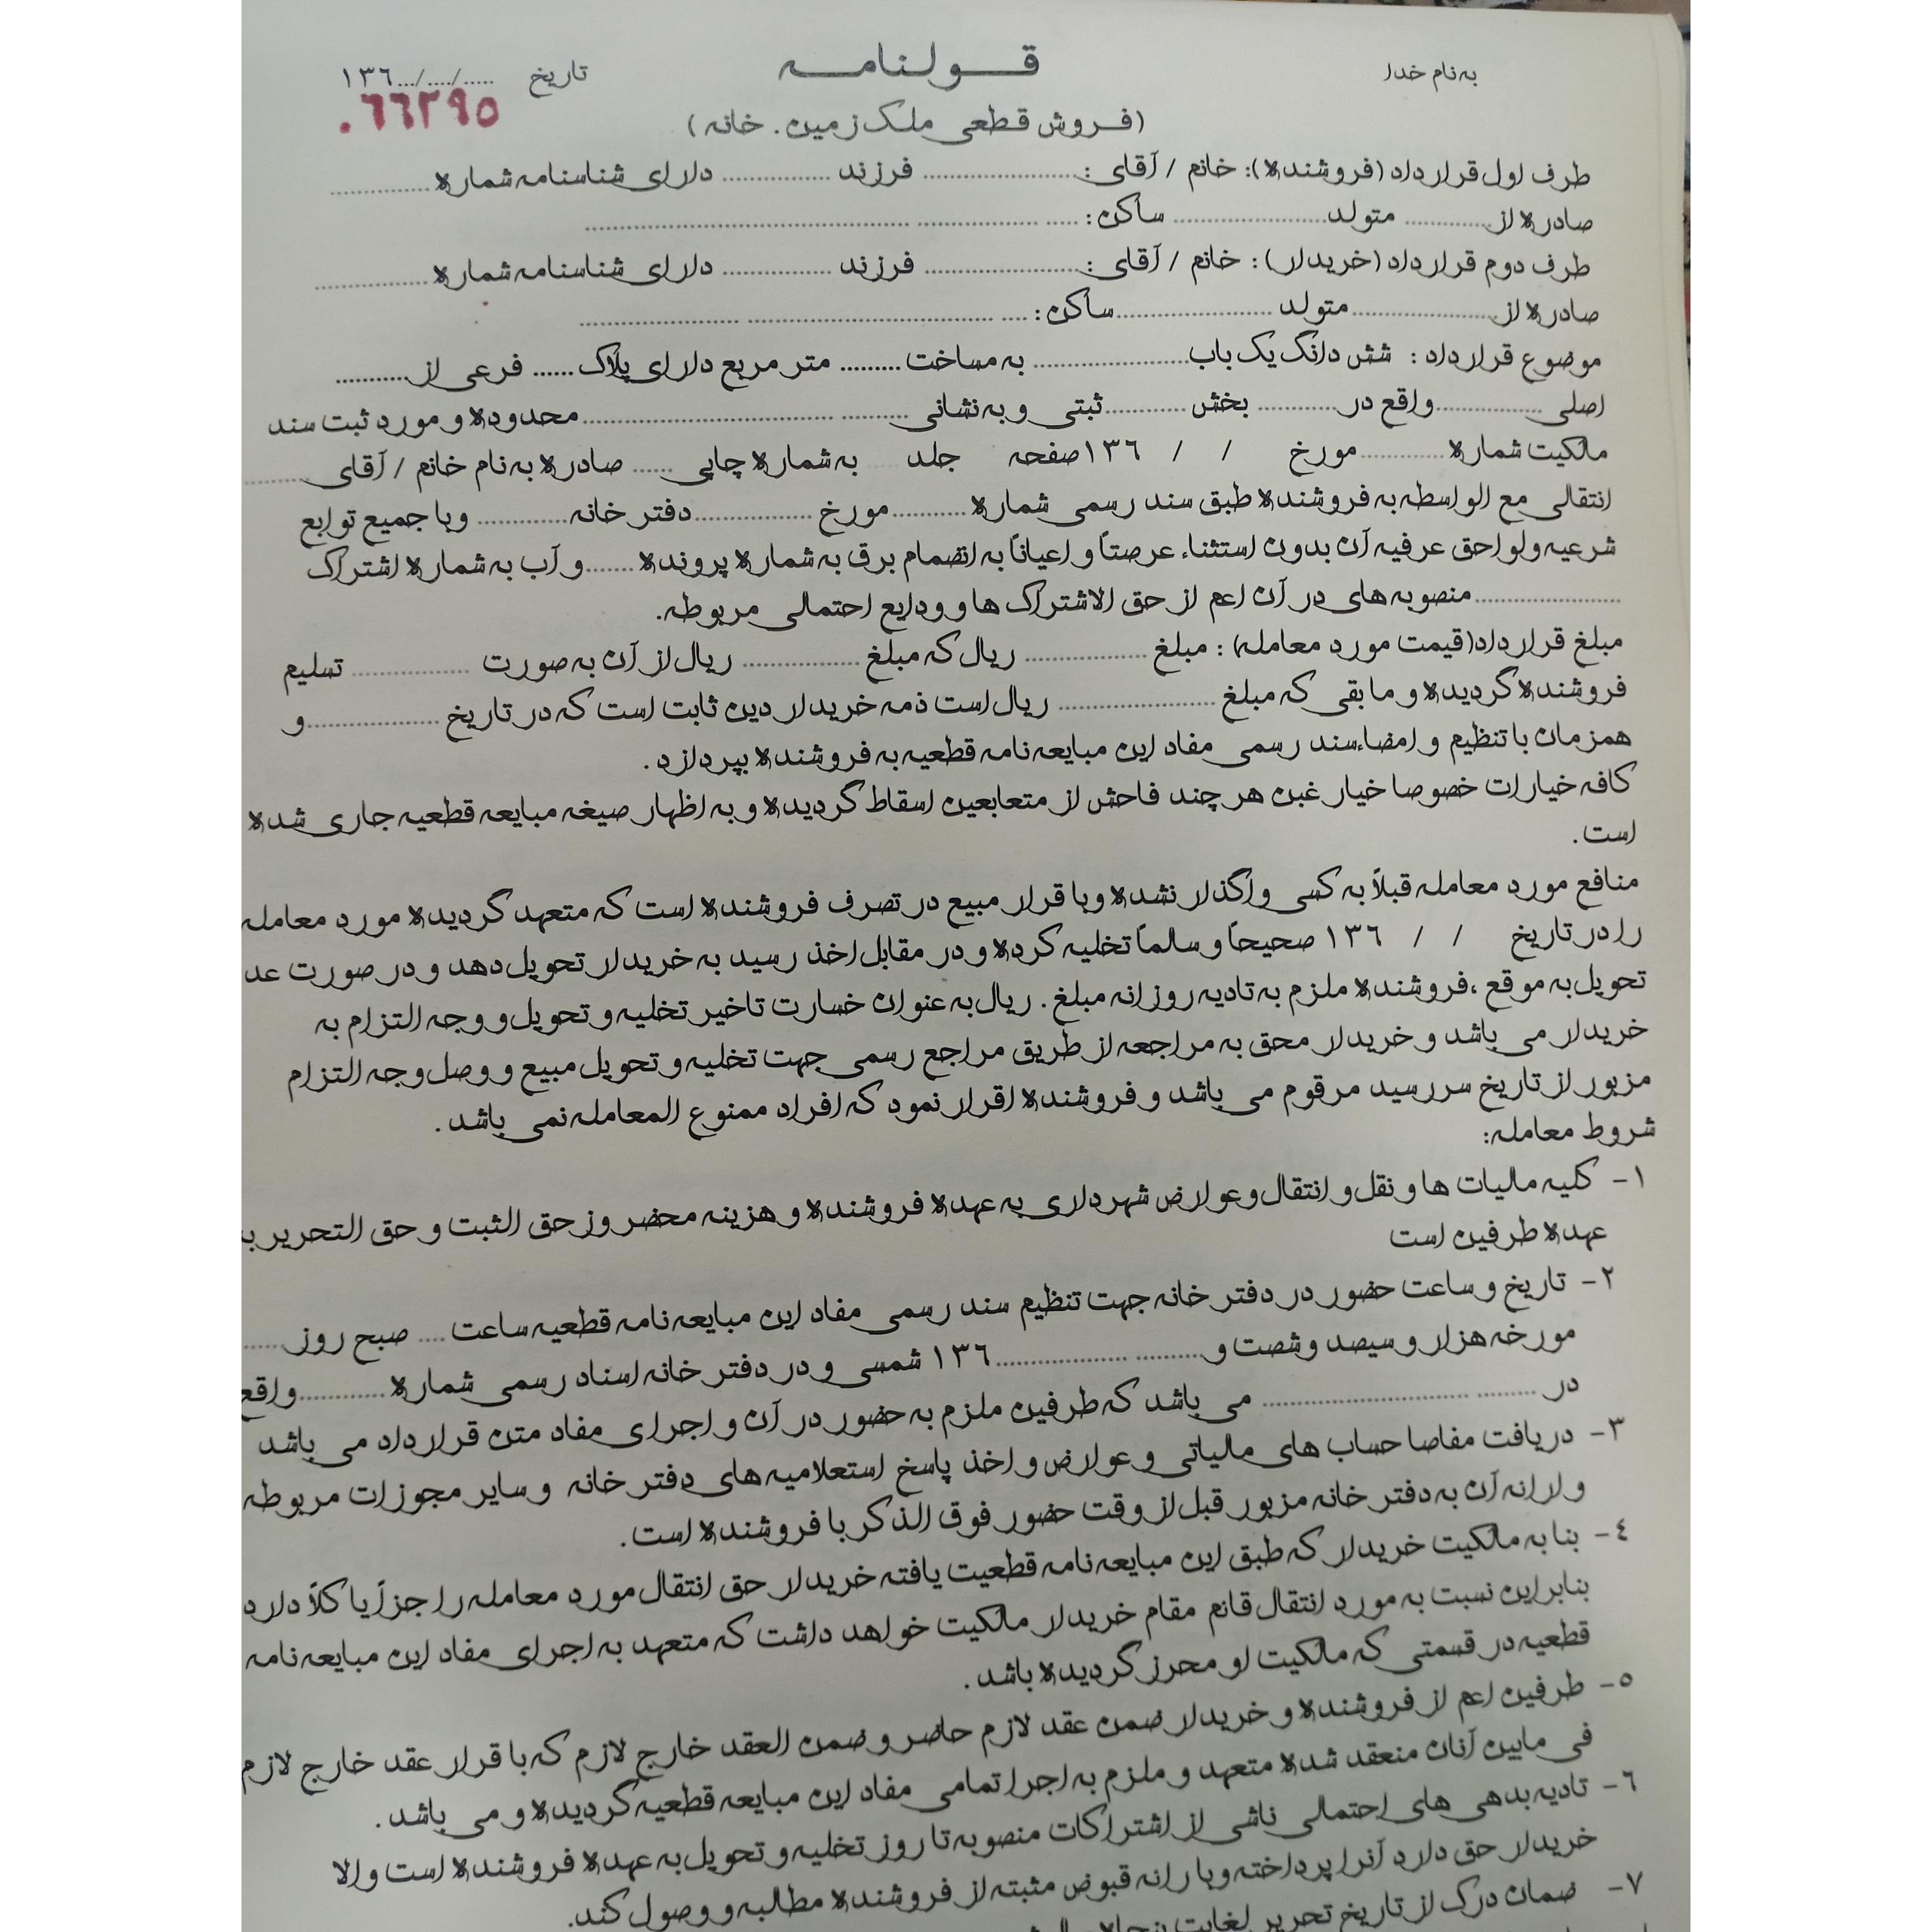 به نام خدا
قولنامه
تاریخ ...../..../...۱۳۶
۰۶۶۲۹۵
(فروش قطعی ملک زمین . خانه)
طرف اول قرارداد (فروشنده): خانم / آقای : ............ فرزند ............ دارای شناسنامه شماره ............
صادره از ............ متولد ............ ساکن : ............
طرف دوم قرارداد (خریدار) : خانم / آقای : ............ فرزند ............ دارای شناسنامه شماره ............
صادره از ............ متولد ............ ساکن : ............
موضوع قرارداد : شش دانگ یک باب ............ به مساخت ......... متر مربع دارای پلاک ...... فرعی از ..........
اصلی ............ واقع در ............ بخش ............ ثبتی و به نشانی ............ محدوده و مورد ثبت سند
مالکیت شماره ............ مورخ / / ۱۳۶ صفحه جلد به شماره چاپی ...... صادره به نام خانم / آقای ............
انتقالی مع الواسطه به فروشنده طبق سند رسمی شماره ............ مورخ ............ دفتر خانه ............ وبا جمیع توابع
شرعیه ولواحق عرفیه آن بدون استثناء عرصتاً و اعیاناً به انضمام برق به شماره پرونده ....... و آب به شماره اشتراک
............ منصوبه های در آن اعم از حق الاشتراک ها و ودایع احتمالی مربوطه.
مبلغ قرارداد(قیمت مورد معامله) : مبلغ ............ ریال که مبلغ ............ ریال از آن به صورت ............ تسلیم
فروشنده گردیده و ما بقی که مبلغ ............ ریال است ذمه خریدار دین ثابت است که در تاریخ ............ و
همزمان با تنظیم و امضاءسند رسمی مفاد این مبایعه نامه قطعیه به فروشنده بپردازد .
کافه خیارات خصوصا خیار غبن هر چند فاحش از متعابعین اسقاط گردیده و به اظهار صیغه مبایعه قطعیه جاری شده
است .
منافع مورد معامله قبلاً به کسی واگذار نشده وبا قرار مبیع در تصرف فروشنده است که متعهد گردیده مورد معامله
را در تاریخ / / ۱۳۶ صحیحاً و سالماً تخلیه کرده و در مقابل اخذ رسید به خریدار تحویل دهد و در صورت عد
تحویل به موقع ،فروشنده ملزم به تادیه روزانه مبلغ . ریال به عنوان خسارت تاخیر تخلیه و تحویل و وجه التزام به
خریدار می باشد و خریدار محق به مراجعه از طریق مراجع رسمی جهت تخلیه و تحویل مبیع و وصل وجه التزام
مزبور از تاریخ سررسید مرقوم می باشد و فروشنده اقرار نمود که افراد ممنوع المعامله نمی باشد .
شروط معامله:
۱- کلیه مالیات ها و نقل و انتقال و عوارض شهرداری به عهده فروشنده و هزینه محضر وز حق الثبت و حق التحریر به
عهده طرفین است
۲- تاریخ و ساعت حضور در دفتر خانه جهت تنظیم سند رسمی مفاد این مبایعه نامه قطعیه ساعت .... صبح روز ......
مورخه هزار و سیصد و شصت و ............ ۱۳۶ شمسی و در دفتر خانه اسناد رسمی شماره ............ واقع
در ............ می باشد که طرفین ملزم به حضور در آن و اجرای مفاد متن قرارداد می باشد
۳- دریافت مفاصا حساب های مالیاتی و عوارض و اخذ پاسخ استعلامیه های دفتر خانه و سایر مجوزات مربوطه
و ارانه آن به دفتر خانه مزبور قبل از وقت حضور فوق الذکر با فروشنده است .
۴- بنا به مالکیت خریدار که طبق این مبایعه نامه قطعیت یافته خریدار حق انتقال مورد معامله را جزاً یا کلاً دارد
بنابراین نسبت به مورد انتقال قانم مقام خریدار مالکیت خواهد داشت که متعهد به اجرای مفاد این مبایعه نامه
قطعیه در قسمتی که مالکیت او محرز گردیده باشد .
۵- طرفین اعم از فروشنده و خریدار ضمن عقد لازم حاضر و ضمن العقد خارج لازم که با قرار عقد خارج لازم
فی مابین آنان منعقد شده متعهد و ملزم به اجرا تمامی مفاد این مبایعه قطعیه گردیده و می باشد .
۶- تادیه بدهی های احتمالی ناشی از اشتراکات منصوبه تا روز تخلیه و تحویل به عهده فروشنده است والا
خریدار حق دارد آنرا پرداخته وبا رانه قبوض مثبته از فروشنده مطالبه و وصول کند.
۷- ضمان درک از تاریخ تحریر لغایت